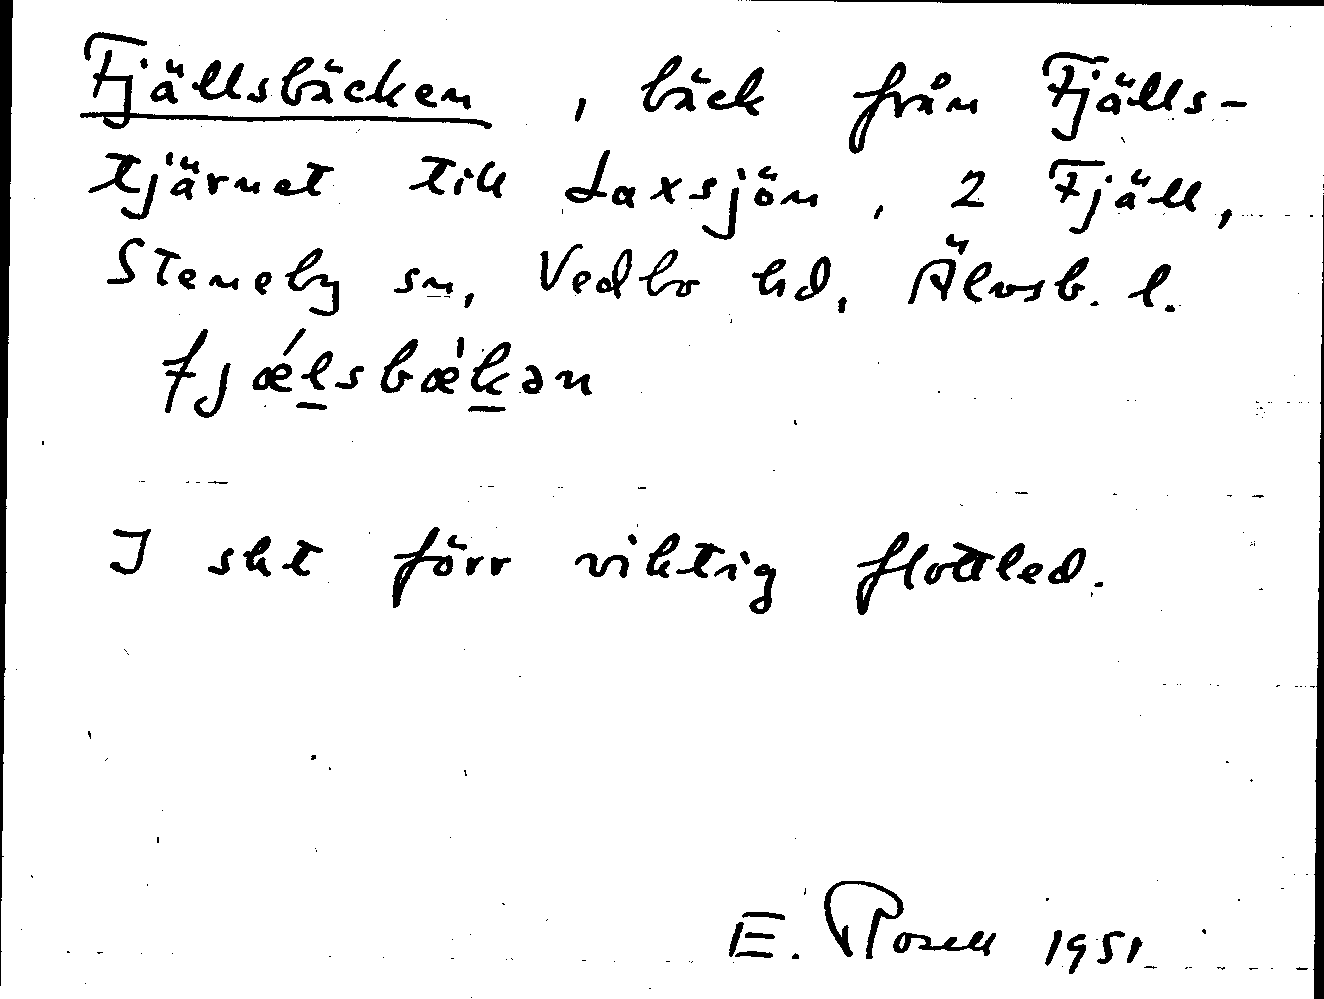 Fjällsbäcken, bäck från Fjälls-
tjärnet till Laxsjön, 2 Fjäll,
Steneby sn, Vedbo hd, Älvsb. l.
fjǽl̲sbæ̀k̲ən
I sht förr viktig flottled.
E. Rosell 1951